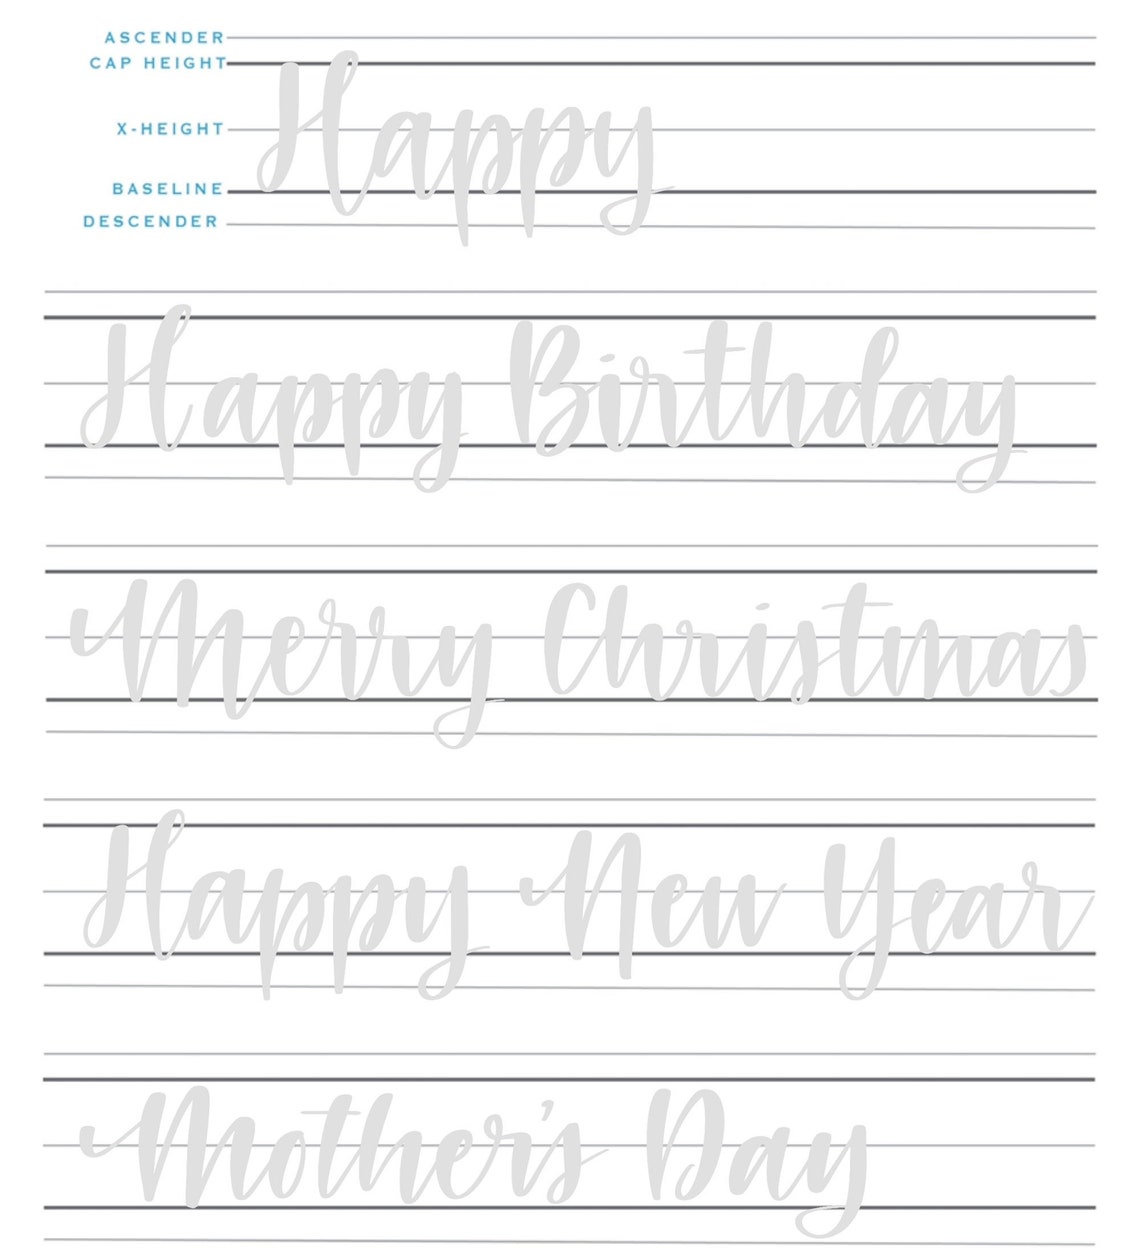 ASCENDER
CAP HEIGHT
X-HEIGHT
BASELINE
DESCENDER
Happy
Happy Birthday
Merry Christmas
Happy New Year
Mother's Day